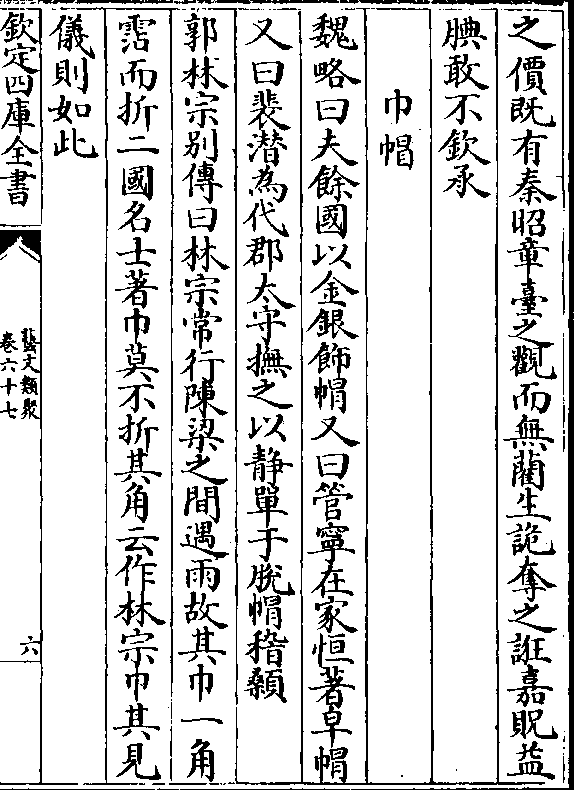 之價既有秦昭章臺之觀而無藺生詭奪之誑嘉貺益
腆敢不欽承
巾帽
魏略曰夫餘國以金銀飾帽又曰管寧在家恒著皁帽
又曰裴潛為代郡太守撫之以靜單于脫帽稽顙
郭林宗别傳曰林宗常行陳梁之間遇雨故其巾一角
霑而折二國名士著巾莫不折其角云作林宗巾其見
儀則如此
欽定四庫全書
藝文類聚
卷六十七
六